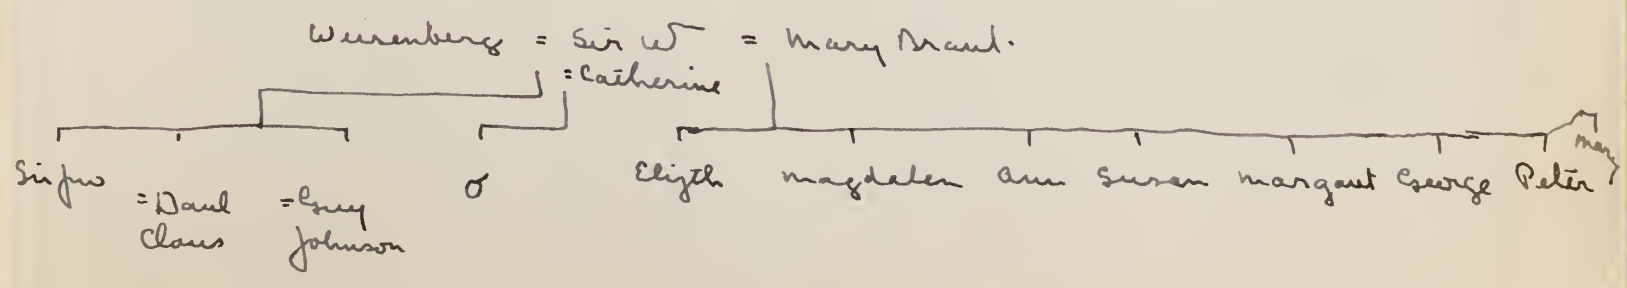 Weisenberg = Sir Wm = Mary Brant.
= Catherine
Sir Jno = Danl Claus = Guy Johnson σ Elizth Magdalen Ann Susan Margaret George Peter Mary